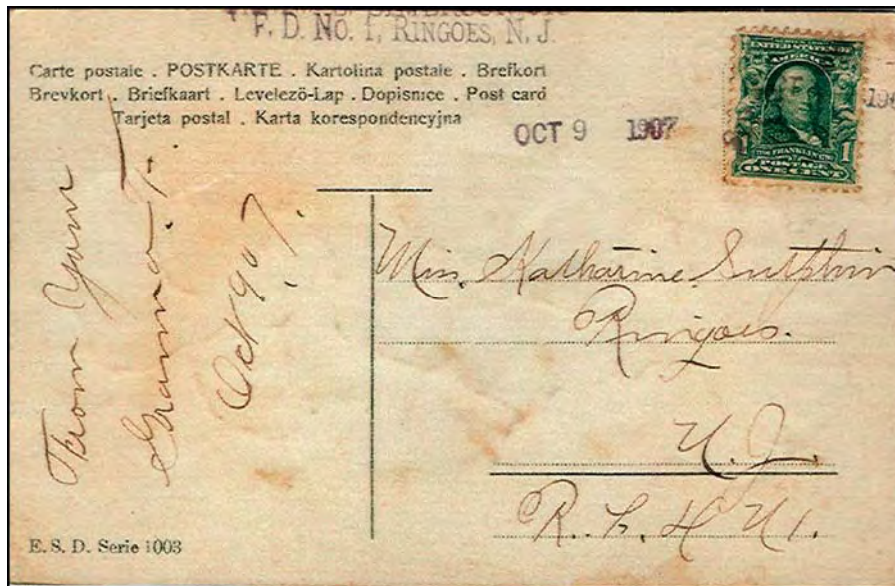 F. D. NO. 1, RINGOES, N. J.
Carte postale . POSTKARTE . Kartolina postale . Brefkort
Brevkort . Briefkaart . Levelező-Lap . Dopisnice . Post card
Tarjeta postal . Karta korespondencyjna
OCT 9 1907
UNITED STATES OF
AMERICA
1 FRANKLIN 1
POSTAGE
ONE CENT
From Your
Gramma.
Oct 907.
Miss Katharine Sutphin
Ringoes.
N.J.
E. S. D. Serie 1003